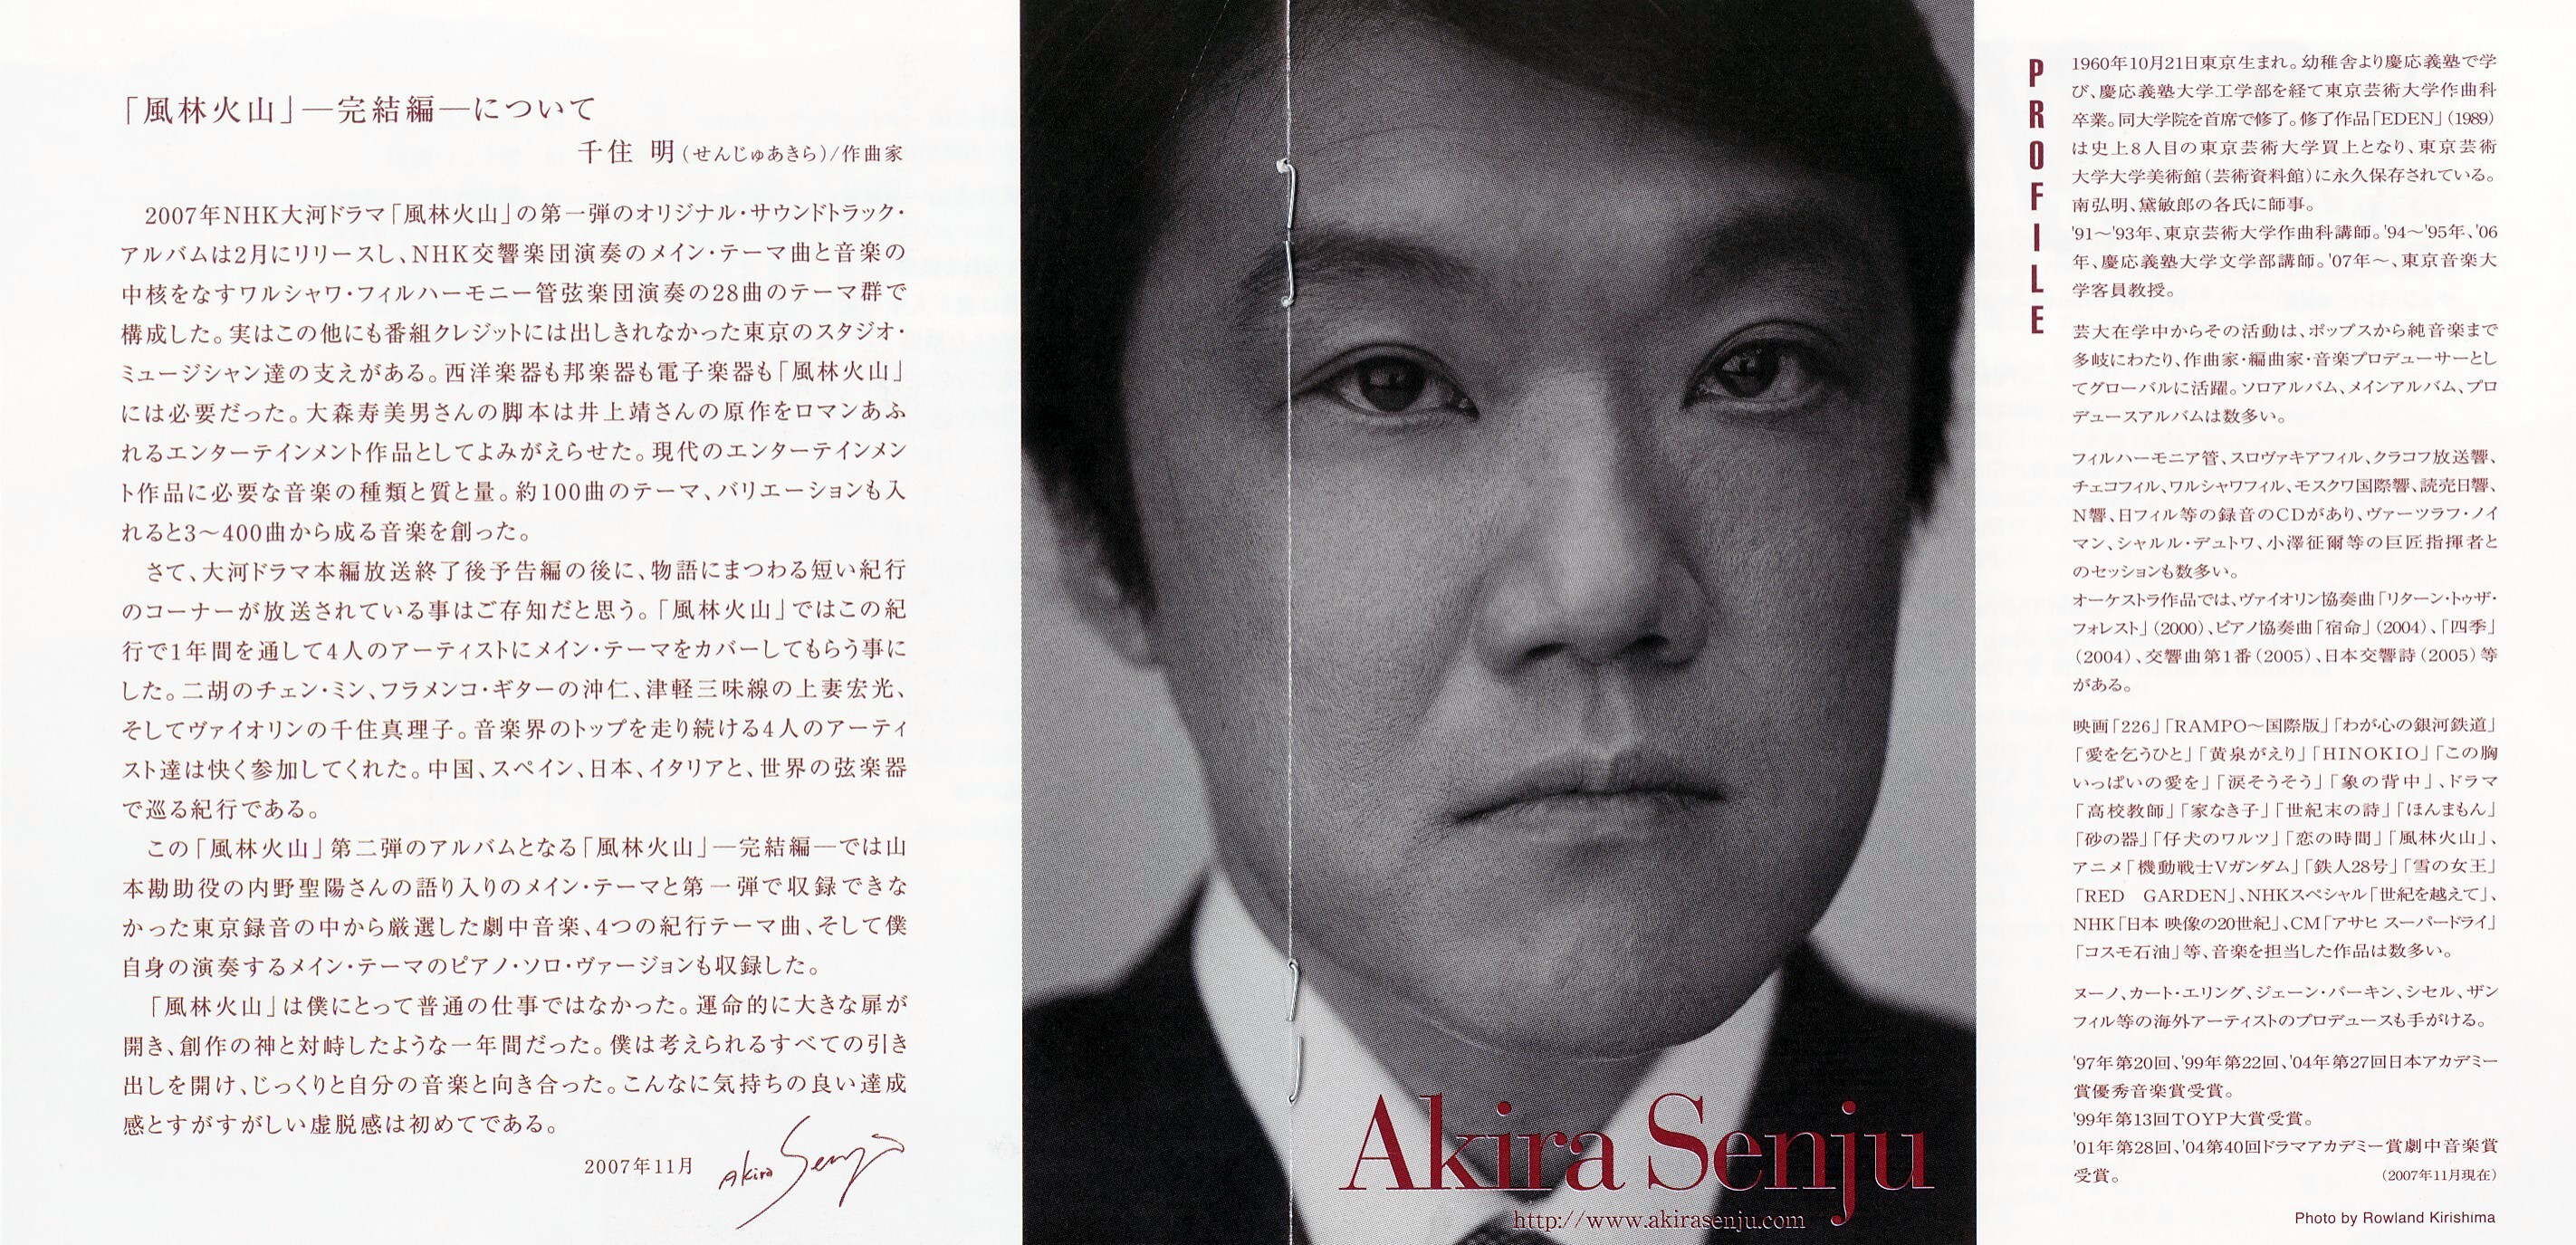 「風林火山」―完結編―について
千住 明(せんじゅあきら)/作曲家
2007年NHK大河ドラマ「風林火山」の第一弾のオリジナル・サウンドトラック・
アルバムは2月にリリースし、NHK交響楽団演奏のメイン・テーマ曲と音楽の
中核をなすワルシャワ・フィルハーモニー管弦楽団演奏の28曲のテーマ群で
構成した。実はこの他にも番組クレジットには出しきれなかった東京のスタジオ・
ミュージシャン達の支えがある。西洋楽器も邦楽器も電子楽器も「風林火山」
には必要だった。大森寿美男さんの脚本は井上靖さんの原作をロマンあふ
れるエンターテインメント作品としてよみがえらせた。現代のエンターテインメン
ト作品に必要な音楽の種類と質と量。約100曲のテーマ、バリエーションも入
れると3〜400曲から成る音楽を創った。
さて、大河ドラマ本編放送終了後予告編の後に、物語にまつわる短い紀行
のコーナーが放送されている事はご存知だと思う。「風林火山」ではこの紀
行で1年間を通して4人のアーティストにメイン・テーマをカバーしてもらう事に
した。二胡のチェン・ミン、フラメンコ・ギターの沖仁、津軽三味線の上妻宏光、
そしてヴァイオリンの千住真理子。音楽界のトップを走り続ける4人のアーティ
スト達は快く参加してくれた。中国、スペイン、日本、イタリアと、世界の弦楽器
で巡る紀行である。
この「風林火山」第二弾のアルバムとなる「風林火山」―完結編―では山
本勘助役の内野聖陽さんの語り入りのメイン・テーマと第一弾で収録できな
かった東京録音の中から厳選した劇中音楽、4つの紀行テーマ曲、そして僕
自身の演奏するメイン・テーマのピアノ・ソロ・ヴァージョンも収録した。
「風林火山」は僕にとって普通の仕事ではなかった。運命的に大きな扉が
開き、創作の神と対峙したような一年間だった。僕は考えられるすべての引き
出しを開け、じっくりと自分の音楽と向き合った。こんなに気持ちの良い達成
感とすがすがしい虚脱感は初めてである。
2007年11月 Akira Senju
Akira Senju
http://www.akirasenju.com
PROFILE
1960年10月21日東京生まれ。幼稚舎より慶応義塾で学
び、慶応義塾大学工学部を経て東京芸術大学作曲科
卒業。同大学院を首席で修了。修了作品「EDEN」(1989)
は史上8人目の東京芸術大学買上となり、東京芸術
大学大学美術館(芸術資料館)に永久保存されている。
南弘明、黛敏郎の各氏に師事。
'91〜'93年、東京芸術大学作曲科講師。'94〜'95年、'06
年、慶応義塾大学文学部講師。'07年〜、東京音楽大
学客員教授。
芸大在学中からその活動は、ポップスから純音楽まで
多岐にわたり、作曲家・編曲家・音楽プロデューサーとし
てグローバルに活躍。ソロアルバム、メインアルバム、プロ
デュースアルバムは数多い。
フィルハーモニア管、スロヴァキアフィル、クラコフ放送響、
チェコフィル、ワルシャワフィル、モスクワ国際響、読売日響、
N響、日フィル等の録音のCDがあり、ヴァーツラフ・ノイ
マン、シャルル・デュトワ、小澤征爾等の巨匠指揮者と
のセッションも数多い。
オーケストラ作品では、ヴァイオリン協奏曲「リターン・トゥ・ザ・
フォレスト」(2000)、ピアノ協奏曲「宿命」(2004)、「四季」
(2004)、交響曲第1番(2005)、日本交響詩(2005)等
がある。
映画「226」「RAMPO〜国際版」「わが心の銀河鉄道」
「愛を乞うひと」「黄泉がえり」「HINOKIO」「この胸
いっぱいの愛を」「涙そうそう」「象の背中」、ドラマ
「高校教師」「家なき子」「世紀末の詩」「ほんまもん」
「砂の器」「仔犬のワルツ」「恋の時間」「風林火山」、
アニメ「機動戦士Vガンダム」「鉄人28号」「雪の女王」
「RED GARDEN」、NHKスペシャル「世紀を越えて」、
NHK「日本 映像の20世紀」、CM「アサヒ スーパードライ」
「コスモ石油」等、音楽を担当した作品は数多い。
ヌーノ、カート・エリング、ジェーン・バーキン、シセル、ザン
フィル等の海外アーティストのプロデュースも手がける。
'97年第20回、'99年第22回、'04年第27回日本アカデミー
賞優秀音楽賞受賞。
'99年第13回TOYP大賞受賞。
'01年第28回、'04第40回ドラマアカデミー賞劇中音楽賞
受賞。 (2007年11月現在)
Photo by Rowland Kirishima